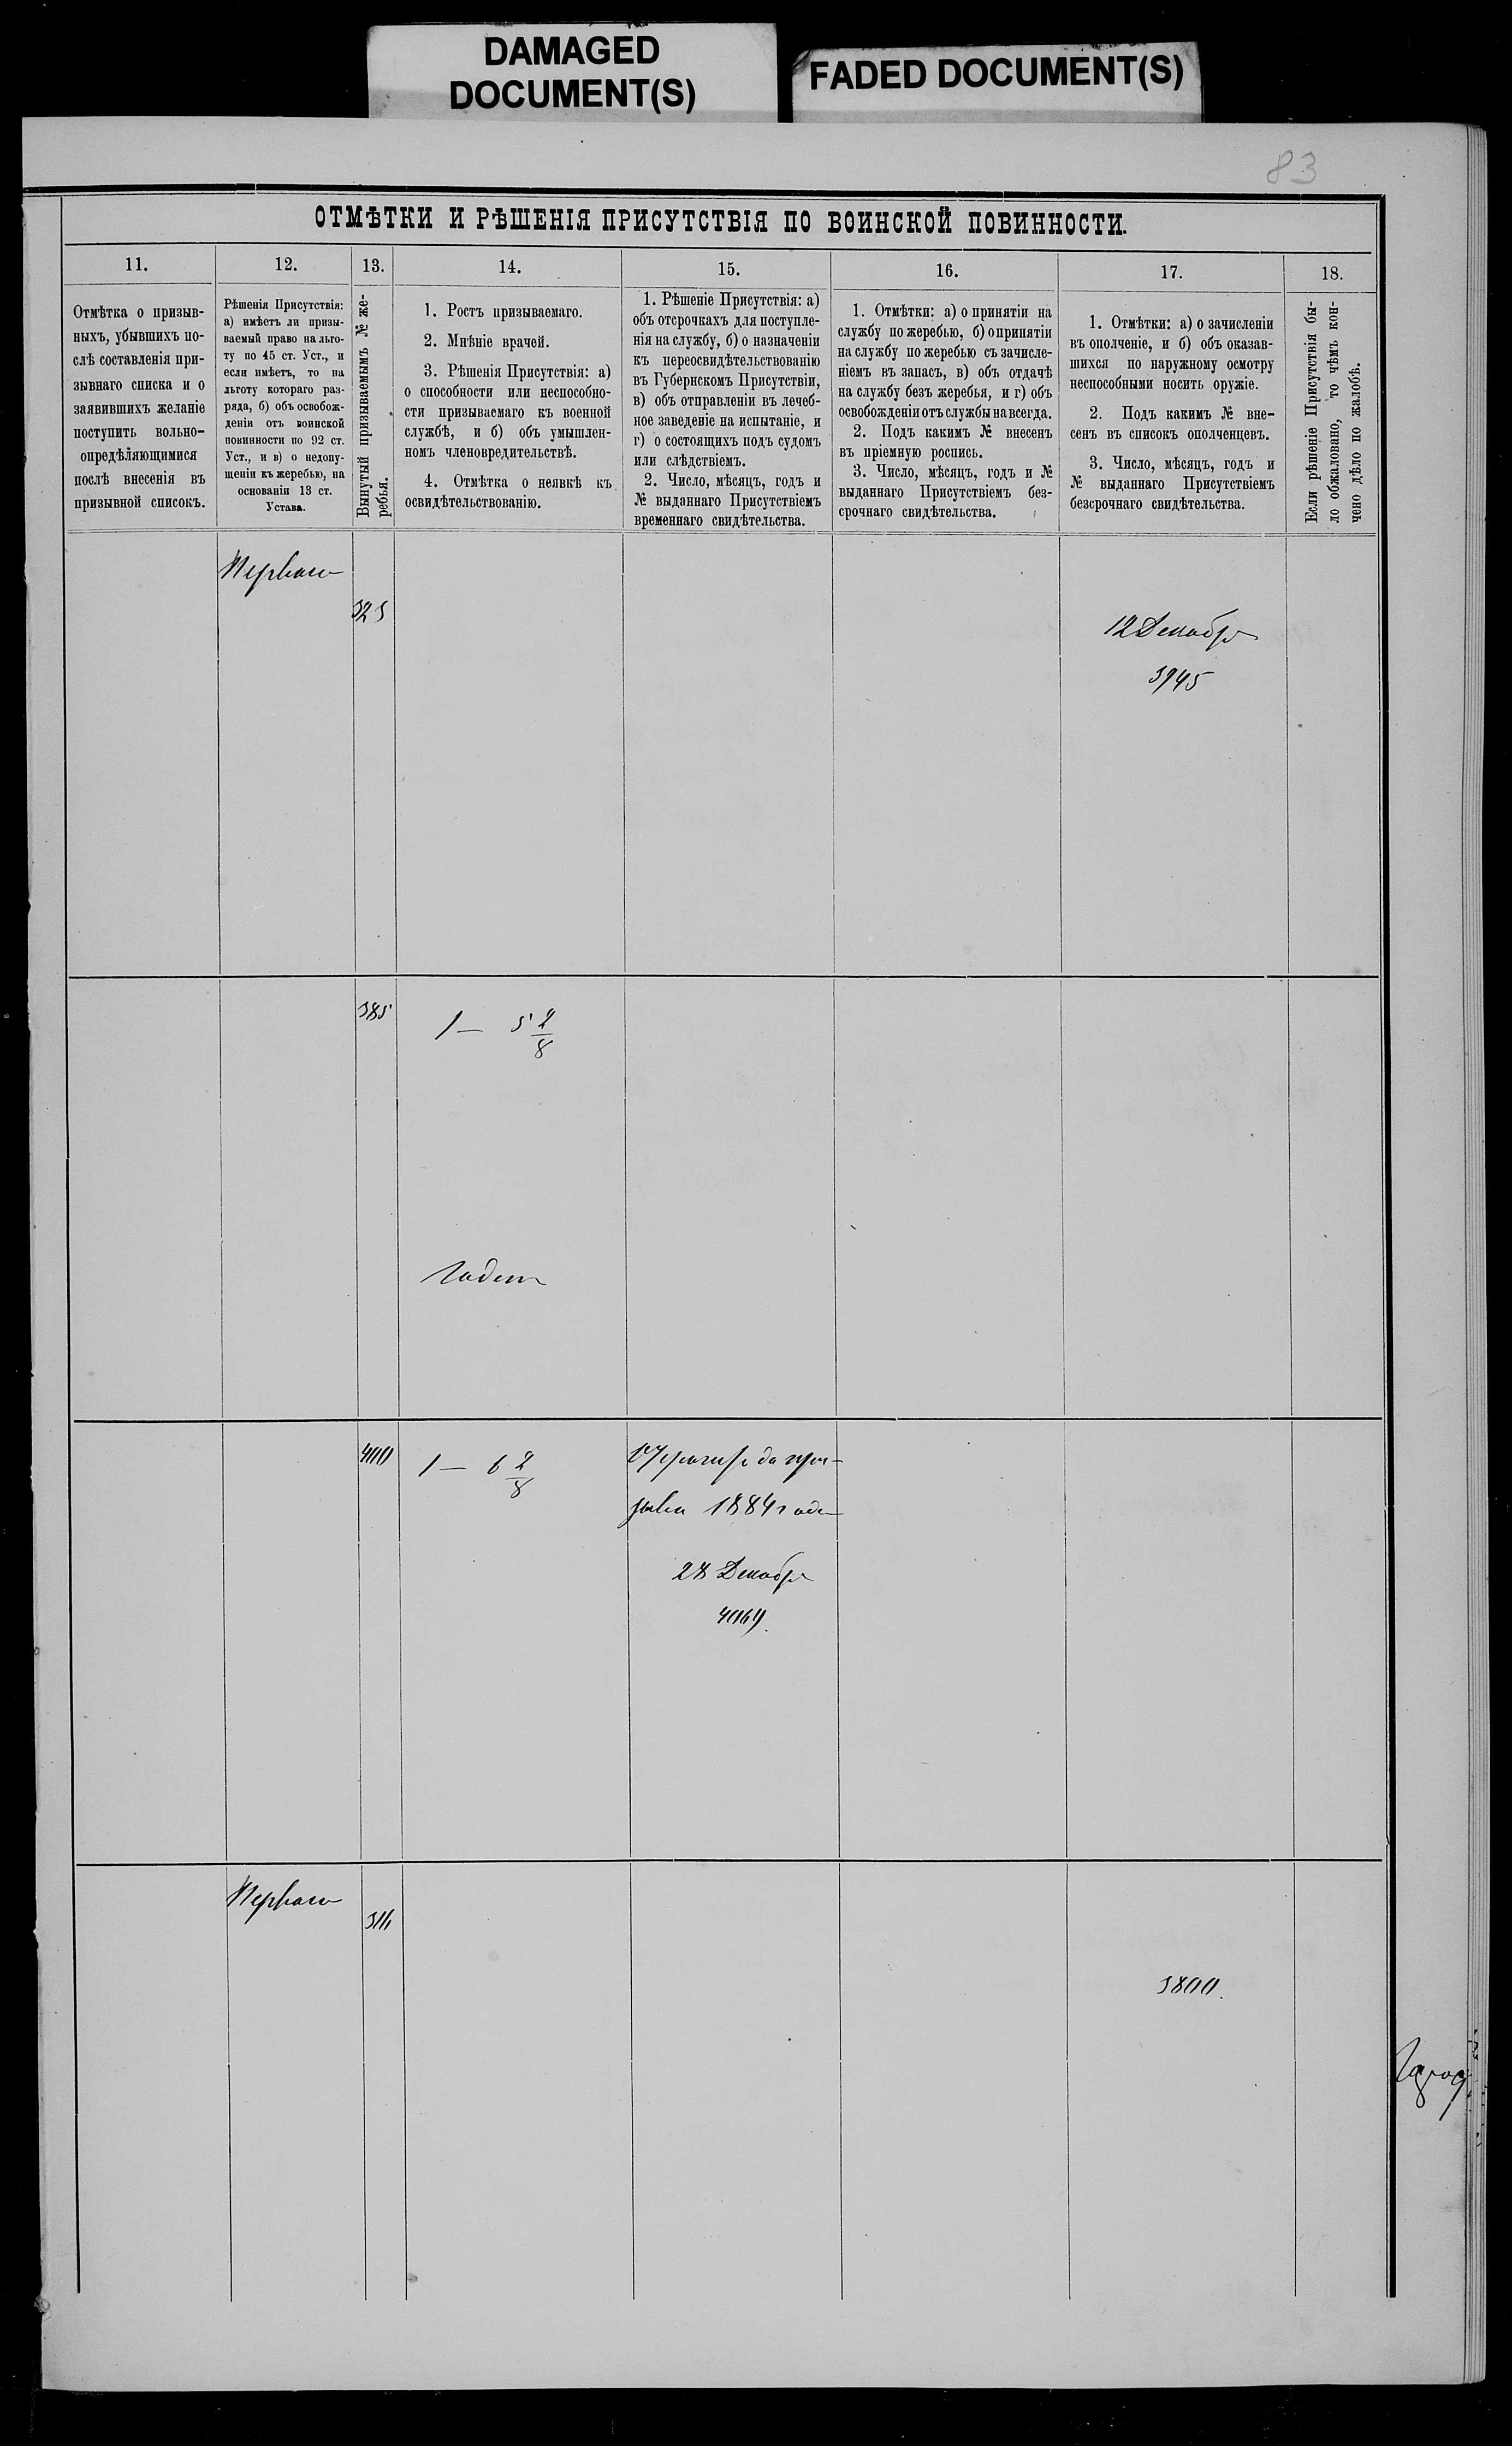 DAMAGED
DOCUMENT(S)
FADED DOCUMENT(S)
83
ОТМѢТКИ И РѢШЕНІЯ ПРИСУТСТВІЯ ПО ВОИНСКОЙ ПОВИННОСТИ.
11.
Отмѣтка о призыв-
ныхъ, убывшихъ по-
слѣ составленія при-
зывнаго списка и о
заявившихъ желаніе
поступить вольно-
опредѣляющимися
послѣ внесенія въ
призывной списокъ.
12.
Рѣшенія Присутствія:
а) имѣетъ ли призы-
ваемый право на льго-
ту по 45 ст. Уст., и
если имѣетъ, то на
льготу котораго раз-
ряда, б) объ освобож-
деніи отъ воинской
повинности по 92 ст.
Уст., и в) о недопу-
щеніи къ жеребью, на
основаніи 13 ст.
Устава.
13.
Вынутый призываемымъ № же-
ребья.
14.
1. Ростъ призываемаго.
2. Мнѣніе врачей.
3. Рѣшенія Присутствія: а)
о способности или неспособно-
сти призываемаго къ военной
службѣ, и б) объ умышлен-
номъ членовредительствѣ.
4. Отмѣтка о неявкѣ къ
освидѣтельствованію.
15.
1. Рѣшеніе Присутствія: а)
объ отсрочкахъ для поступле-
нія на службу, б) о назначеніи
къ переосвидѣтельствованію
въ Губернскомъ Присутствіи,
в) объ отправленіи въ лечеб-
ное заведеніе на испытаніе, и
г) о состоящихъ подъ судомъ
или слѣдствіемъ.
2. Число, мѣсяцъ, годъ и
№ выданнаго Присутствіемъ
временнаго свидѣтельства.
16.
1. Отмѣтки: а) о принятіи на
службу по жеребью, б) о принятіи
на службу по жеребью съ зачисле-
ніемъ въ запасъ, в) объ отдачѣ
на службу безъ жеребья, и г) объ
освобожденіи отъ службы навсегда.
2. Подъ какимъ № внесенъ
въ пріемную роспись.
3. Число, мѣсяцъ, годъ и №
выданнаго Присутствіемъ без-
срочнаго свидѣтельства.
17.
1. Отмѣтки: а) о зачисленіи
въ ополченіе, и б) объ оказав-
шихся по наружному осмотру
неспособными носить оружіе.
2. Подъ какимъ № вне-
сенъ въ списокъ ополченцевъ.
3. Число, мѣсяцъ, годъ и
№ выданнаго Присутствіемъ
безсрочнаго свидѣтельства.
18.
Если рѣшеніе Присутствія бы-
ло обжаловано, то чѣмъ кон-
чено дѣло по жалобѣ.
Перваго
325
12 Декабря
3945
385
1 — 5 2/8
Годенъ
400
1 — 6 2/8
Отсрочить до при-
зыва 1884 года
28 Декабря
4069.
Перваго
316
3800.